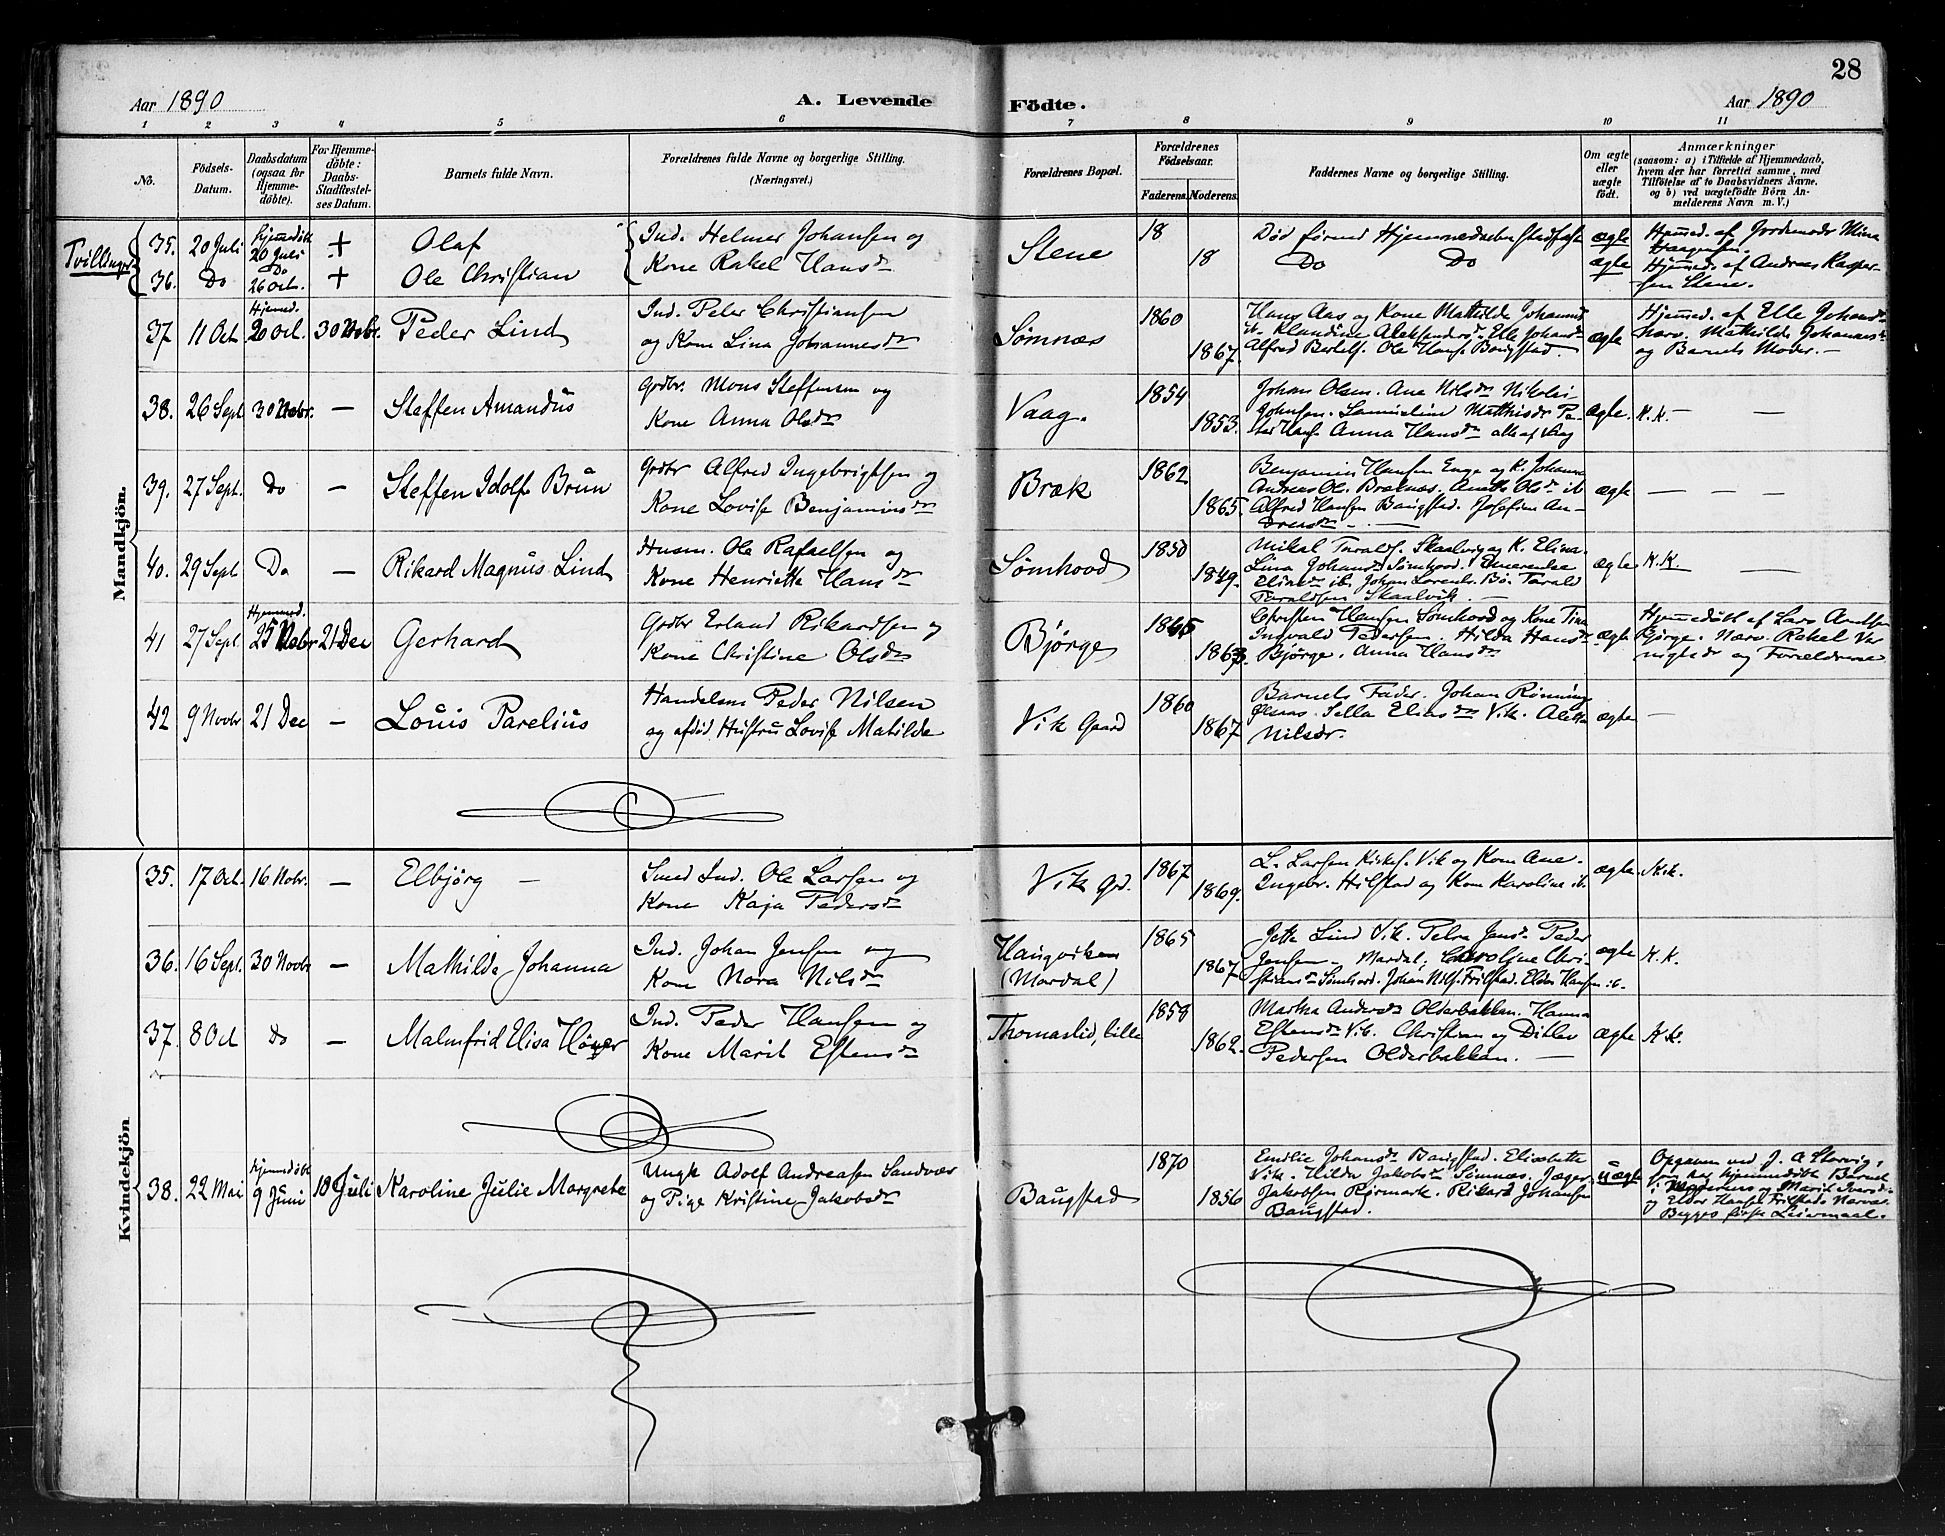 28
Aar 1890
A. Levende Födte.
Aar 1890
1 2 3 4 5 6 7 8 9 10 11
No.
Födsels-Datum.
Daabsdatum (ogsaa for Hjemme-döbte).
For Hjemme-döbte: Daabs-Stadfæstel-ses Datum.
Barnets fulde Navn.
Forældrenes fulde Navne og borgerlige Stilling.
(Næringsvei.)
Forældrenes Bopæl.
Forældrenes Födselsaar.
Faderens.
Moderens.
Faddernes Navne og borgerlige Stilling.
Om ægte eller uægte födt.
Anmærkninger
(saasom: a) i Tilfælde af Hjemmedaab,
hvem der har forrettet samme, med
Tilföielse af to Daabsvidners Navne.
og b) ved uægtefödte Börn An-
melderens Navn m. V.)
Mandkjön.
Tvillinger
35. 20 Juli Hjemmedöbt 20 Juli + Olaf Ind. Helmer Johansen og Stene 18 Död förend ægte Hjemmed. af Jordemoder Mina
36. Do Do 26 Oct. + Ole Christian Kone Rakel Hansdr 18 Do Do ægte Hjemmed. af Andreas Kasper-
sen Stene.
37 11 Oct Hjemmed. 20 Oct. 30 Novbr. Peder Lind Ind. Peter Christiansen
og Kone Lina Johannesdr Sömnæs 1860 1867. Hans Aas og Kone Mathilde
ib. Klaudine Aleksendersdr. Elle Johansdr
Alfred Bertels. Ole Hans. Baugstad. ægte Hjemmed. af Elle Johansdr
Narv. Mathilde Johannesdr
og Barnets Moder. —
38. 26 Sept. 30 Novbr. — Steffen Amandus Grdbr. Mons Steffensen og
Kone Anna Olsdr Vaag. 1854 1853. Johan Olsen. Ane Nilsdr Nikolai
Johnsen. Mathisdr Pe-
Anna Hansdr alle af Vaag ægte. K.K. — —
39. 27 Sept. Do — Steffen Idolf Brün Grdbr Alfred Ingebrigtsen og
Kone Lovise Benjaminsdr Bræk 1862 1865. Benjamin Hansen Enge og K. Johanna
Andreas Ols. Bræknæs. Anette Olsdr ib
Alfred Hansen Baugstad. Josefine An-
dreasdr — ægte — — —
40. 29 Sept Do — Rikard Magnus Lind Husm. Ole Rafaelsen og
Kone Henriette Hansdr Sömhovd 1850 1849. Mikal Taralds. Skaalvig og K. Elina.
Lina Johansdr Sömhovd.
Eliasdr ib. Johan Lorents. Bö. Tarald
Taraldsen Skaalvik. — ægte K.K. —
41 27 Sept. Hjemmed. 25 Novbr 21 Dec Gerhard Grdbr Erland Rikardsen og
Kone Christine Olsdr Björge 1865 1863. Christen Hansen Sömhovd og Kone Tina
Ingvald Pedersen. Hilda Hansdr
Björge. Anna Hansdr ægte Hjemmedöbt af Lars Arntsen
Björge. Narv. Rakel
og Forældrene
42 9 Novbr 21 Dec — Louis Parelius Handelsm Peder Nilsen
og afdöd Hustru Lovise Matilde Vik Gaard 1860 1867 Barnets Fader. Johan Rönning
Sella Eliasdr Vik. Aletta
Nilsdr. ægte —
Kvindekjön
35. 17 Oct. 16 Nobr. — Elbjörg — Smed Ind. Ole Larsen og
Kone Kaja Pedersdr Vik Grd. 1867 1869. L. Larsen Kirkes. Vik og Kone Ane.
Ingebr. Hilstad og Kone Karoline ib. ægte K.K.
36. 16 Sept. 30 Novbr — Mathilde Johanna Ind. Johan Jensen og
Kone Nora Nilsdr Haugviken
(Mardal) 1865 1867 Jetta Lind Vik. Petra Jensdr Peder
Jensen — Mardal; Caroline Chri-
stiansdr Sömhovd. Johan Nils. Frilstad. Elder Hansen ib. ægte K.K.
37. 8 Oct Do — Malmfrid Elisa Höyer Ind. Peder Hansen og
Kone Marit Estensdr Thomaslid, lille 1858 1862. Martha Andersdr Olderbakken. Hanna
Estensdr Vik. Christian og Ditlev
Pedersen Olderbakken. — ægte K.K.
38. 22 Mai Hjemmedöbt 9 Juni 10 Juli Karoline Julie Margrete Ungk Adolf Andreasen Sandvær
og Pige Kristine Jakobsdr Baugstad 1870 1856 Emilie Johansdr Baugstad. Elisabeth
Vik. Hilda Jakobsdr Sömnæs. Jæger
Jakobsen Rismark. Rikard Johansen
Baugstad. uægte Opgaven ved J. A. Storvig,
som har hjemmedöbt Barnet
i og Marit
og Elder Hansen Frilstads Nærvær.
Begges förste Leiermaal.